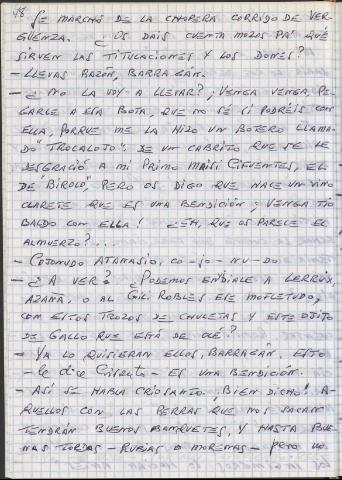 78
Se marchó de la chopera corrido de ver-
güenza. ¿Os dais cuenta mozos pa' qué
sirven las titulaciones y los dones?
- Llevas razón, Barragán.
- ¿No la voy a llevar? ¡Venga venga, pe-
garle a esa bota, que no sé si podréis con
ella, porque me la hizo un botero llama-
do "Trocalojo", de un cabrito que se le
desgració a mi primo Maisi Cifuentes, el
de "Birolo", pero os digo que hace un vino
clarete que es una bendición; venga tío
Baldo con ella! ¿Eh, que os parece el
almuerzo?...
- Cojonudo Atanasio, co-jo-nu-do
- ¿A ver? ¿Podemos endiñale a Lerrux,
Azaña, o al Gil Robles ese mofletudo,
con estos trozos de chuletas y este ojito
de gallo que está de olé?
- Ya lo quisieran ellos, Barragán. Esto
- le dice - es una bendición.
- Así se habla Criosanto. ¡Bien dicho! A-
quellos con las perras que nos sacan
tendrán buenos banquetes, y hasta bue-
nas tordas - rubias o morenas - pero no